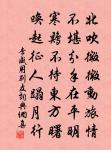 北吹微微動旅情
不堪分手在平明
寒雞不待東方曙
喚起征人蹋月行
李咸用別友詞典網集